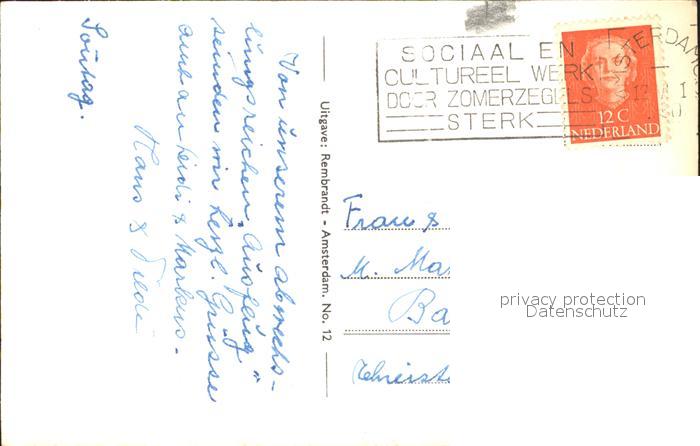 Sonntag.
Von unserem abwechs-
lungsreichen "Ausflug"
senden wir herzl. Grüsse
auch an Heidi & Markus.
Hans & 
Uitgave: Rembrandt - Amsterdam. No. 12
SOCIAAL EN
CULTUREEL WERK
DOOR ZOMERZEGELS
STERK
12 C
NEDERLAND
Frau &
M. Ma
Ba
privacy protection
Datenschutz